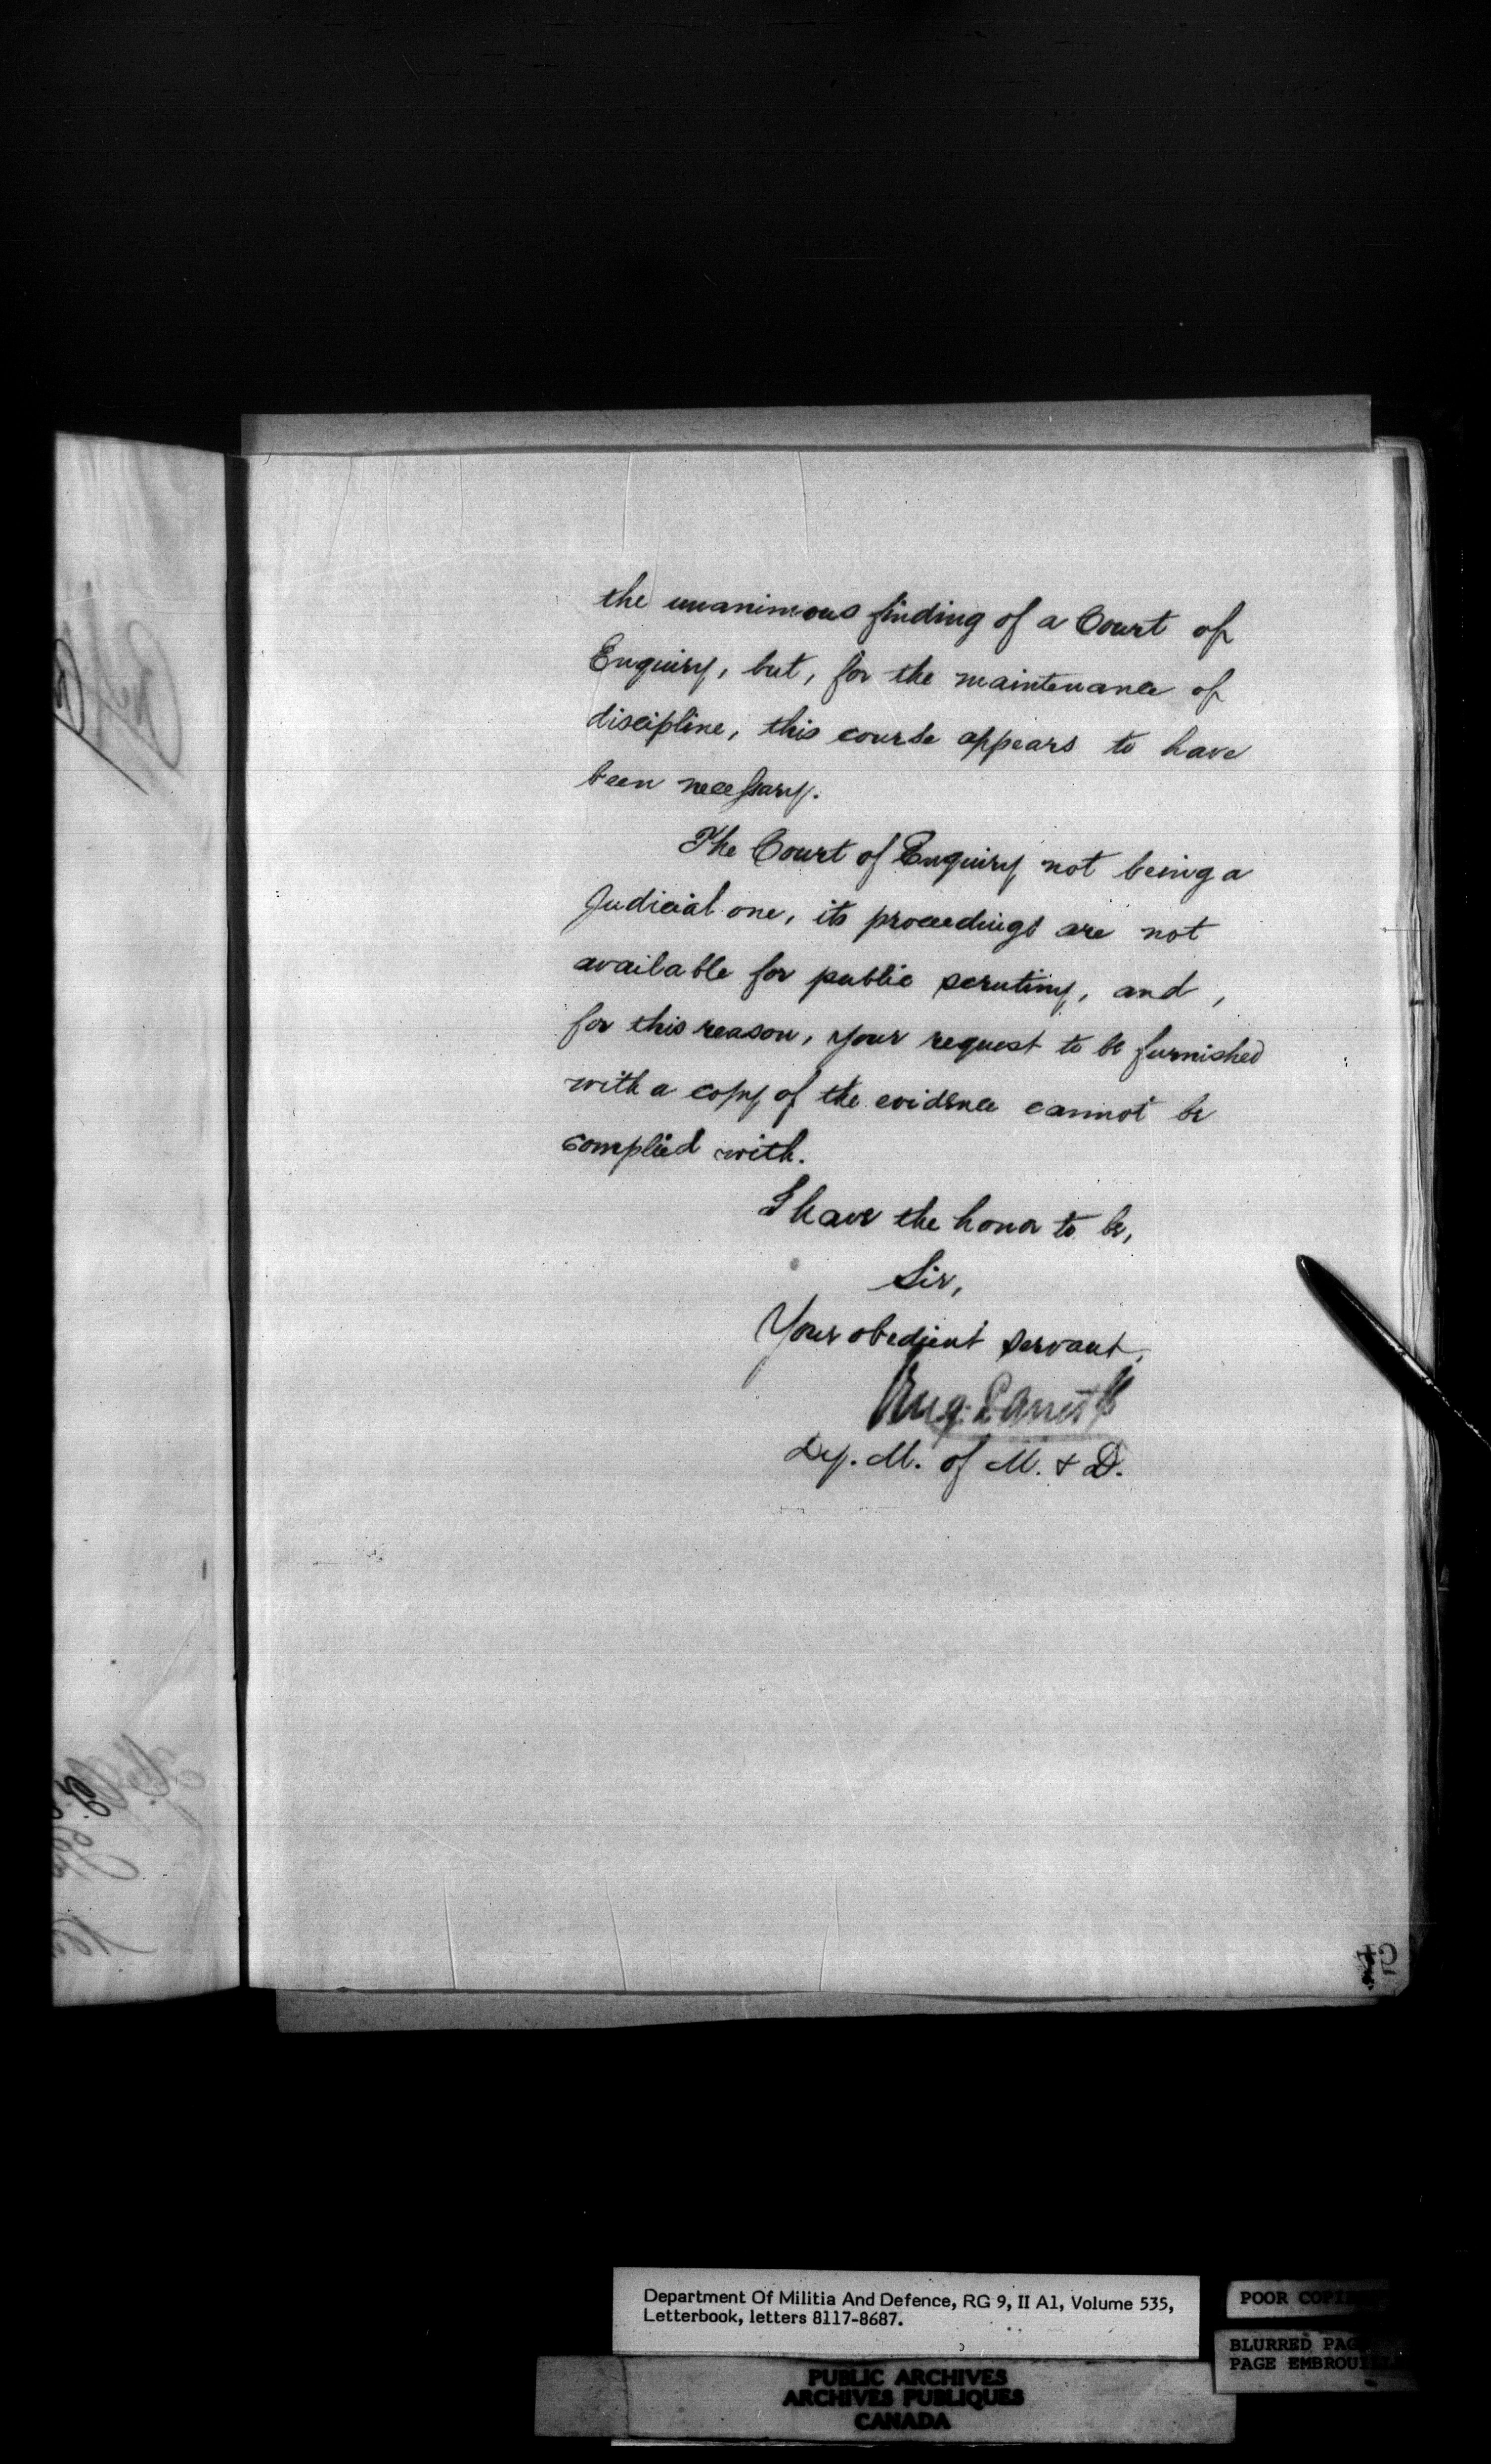 the unanimous finding of a Court of
Enquiry, but, for the maintenance of
discipline, this course appears to have
been necessary.
The Court of Enquiry not being a
Judicial one, its proceedings are not
available for public scrutiny, and,
for this reason, your request to be furnished
with a copy of the evidence cannot be
complied with.
I have the honor to be,
Sir,
Your obedient servant,
Dep. M. of M. & D.
Department Of Militia And Defence, RG 9, II A1, Volume 535,
Letterbook, letters 8117-8687.
POOR
BLURRED
PAGE
PUBLIC ARCHIVES
ARCHIVES PUBLIQUES
CANADA